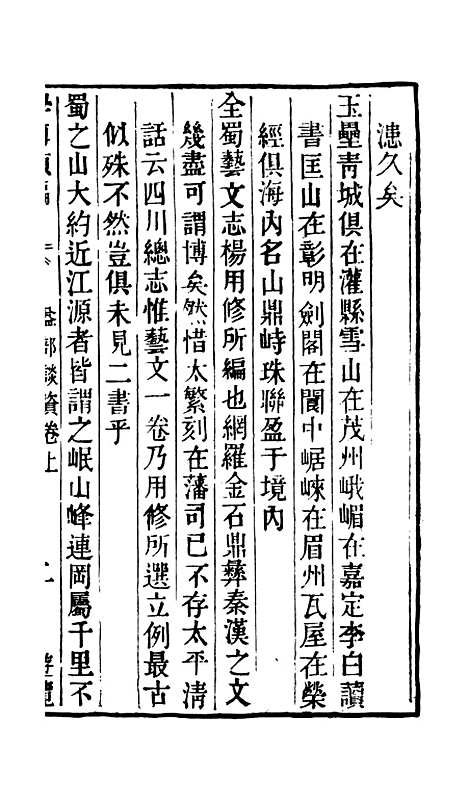 漶久矣
玉壘青城俱在灌縣雪山在茂州峨嵋在嘉定李白讀
書匡山在彰明劍閣在閬中崌崍在眉州瓦屋在榮
經俱海內名山鼎峙珠聯盈于境內
全蜀藝文志楊用修所編也網羅金石鼎彝秦漢之文
幾盡可謂博矣然惜太繁刻在藩司已不存太平清
話云四川總志惟藝文一卷乃用修所選立例最古
似殊不然豈俱未見二書乎
蜀之山大約近江源者皆謂之岷山峰連岡屬千里不
益部談資卷上